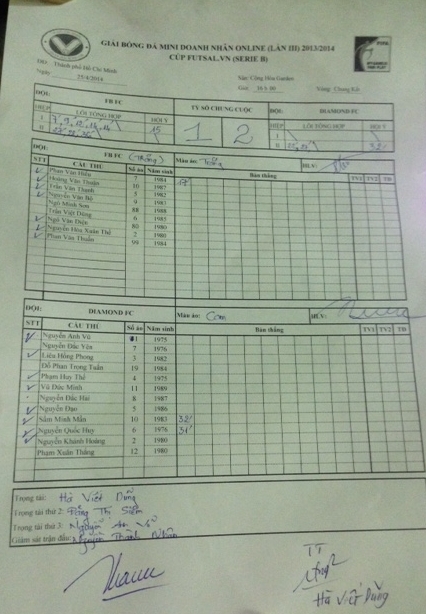 GIẢI BÓNG ĐÁ MINI DOANH NHÂN ONLINE (LẦN III) 2013/2014
CÚP FUTSAL.VN (SERIE B)
Thành phố Hồ Chí Minh
Sân: Cộng Hòa Garden
Ngày 25/4/2014
Giờ: 16 h 00
Vòng: Chung Kết
ĐỘI: FB FC
TỶ SỐ CHUNG CUỘC
ĐỘI: DIAMOND FC
HIỆP LỖI TỔNG HỢP HỘI Ý
HIỆP LỖI TỔNG HỢP HỘI Ý
I
15
1 2
I
II
II
32'
ĐỘI: FB FC (Trắng)
Màu áo: Trắng
HLV:
STT CẦU THỦ Số áo Năm sinh Bàn thắng TV1 TV2 TĐ
Phan Văn Hiếu 7 1984
Hoàng Văn Thuận 10 1987 17'
Trần Văn Thanh 5 1982
Nguyễn Văn Bộ 9 1983
Ngô Minh Sơn 88 1988
Trần Việt Dũng 6 1985
Ngô Văn Diện 80 1980
Nguyễn Hòa Xuân Thế 2 1980
Phan Văn Thuần 99 1984
ĐỘI: DIAMOND FC
Màu áo: Cam
HLV:
STT CẦU THỦ Số áo Năm sinh Bàn thắng TV1 TV2 TĐ
Nguyễn Anh Vũ 1 1975
Nguyễn Đắc Yên 7 1976
Liêu Hồng Phong 3 1982
Đỗ Phan Trong Tuấn 19 1984
Phạm Huy Thế 4 1975
Vũ Đức Minh 11 1989
Nguyễn Đắc Hải 8 1987
Nguyễn Đạo 5 1986
Sấm Minh Mẫn 10 1983 32'
Nguyễn Quốc Huy 6 1976 31'
Nguyễn Khánh Hoàng 2 1980
Phạm Xuân Thắng 12 1980
Trọng tài: Hà Viết Dũng
Trọng tài thứ 2: Đặng Thị Siêm
Trọng tài thứ 3: Nguyễn An Vũ
Giám sát trận đấu: Nguyễn Thành Nhân
TT
Hà Viết Dũng